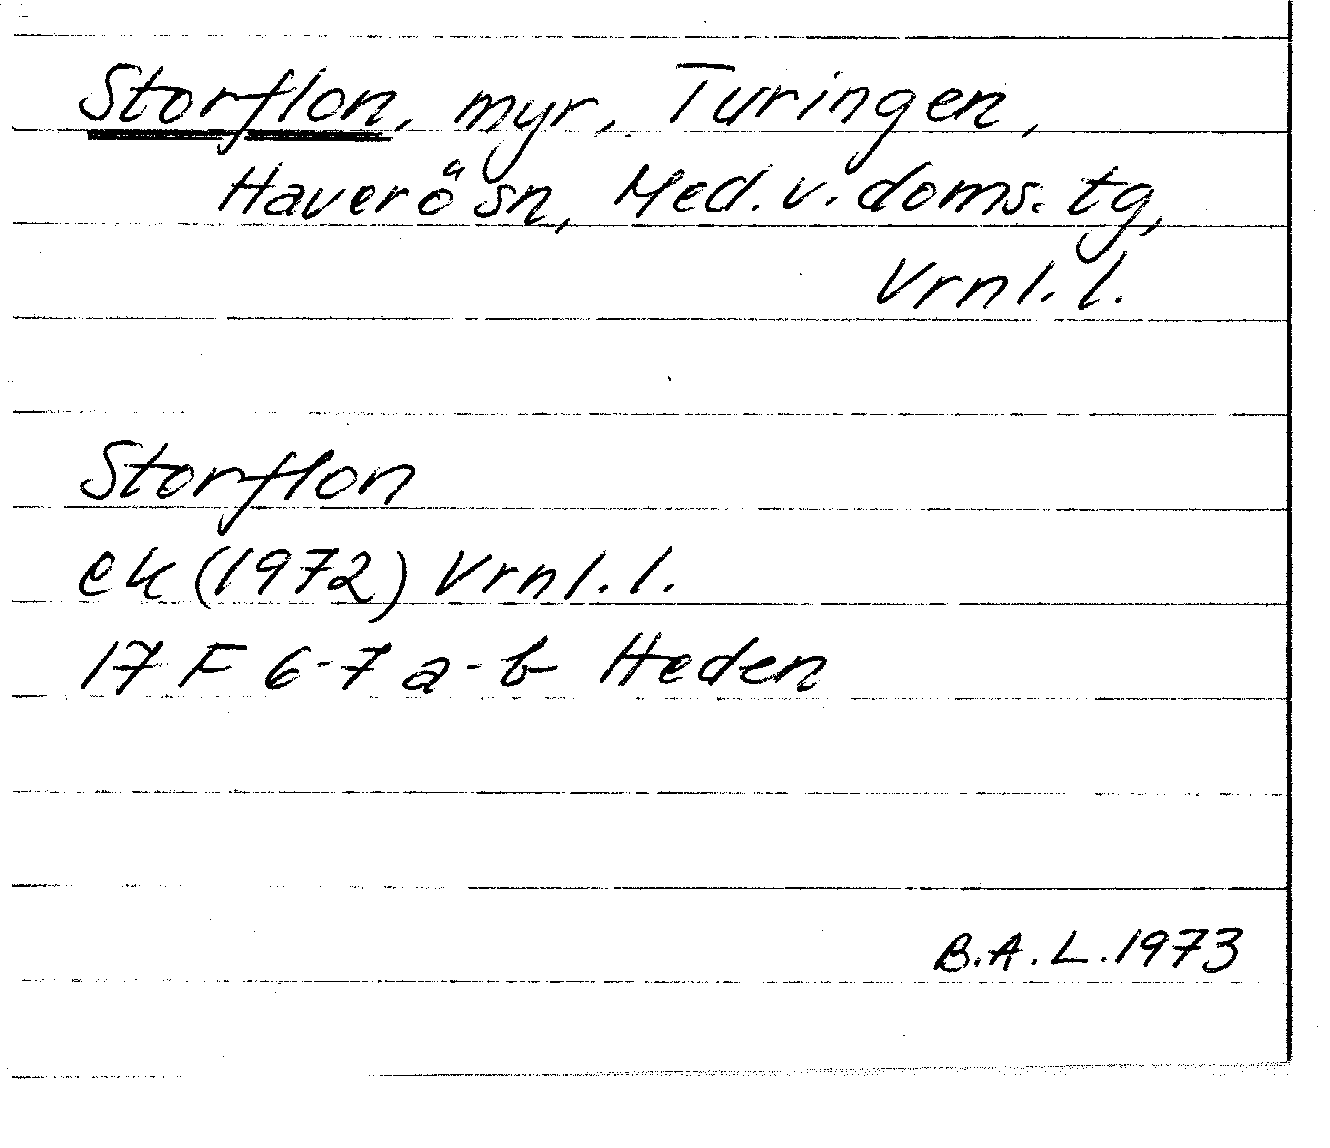 Storflon, myr, Turingen,
Haverö sn, Med. v. doms. tg,
Vrnl. l.
Storflon
ek (1972) Vrnl. l.
17 F 6-7 a-b Heden
B.A.L. 1973